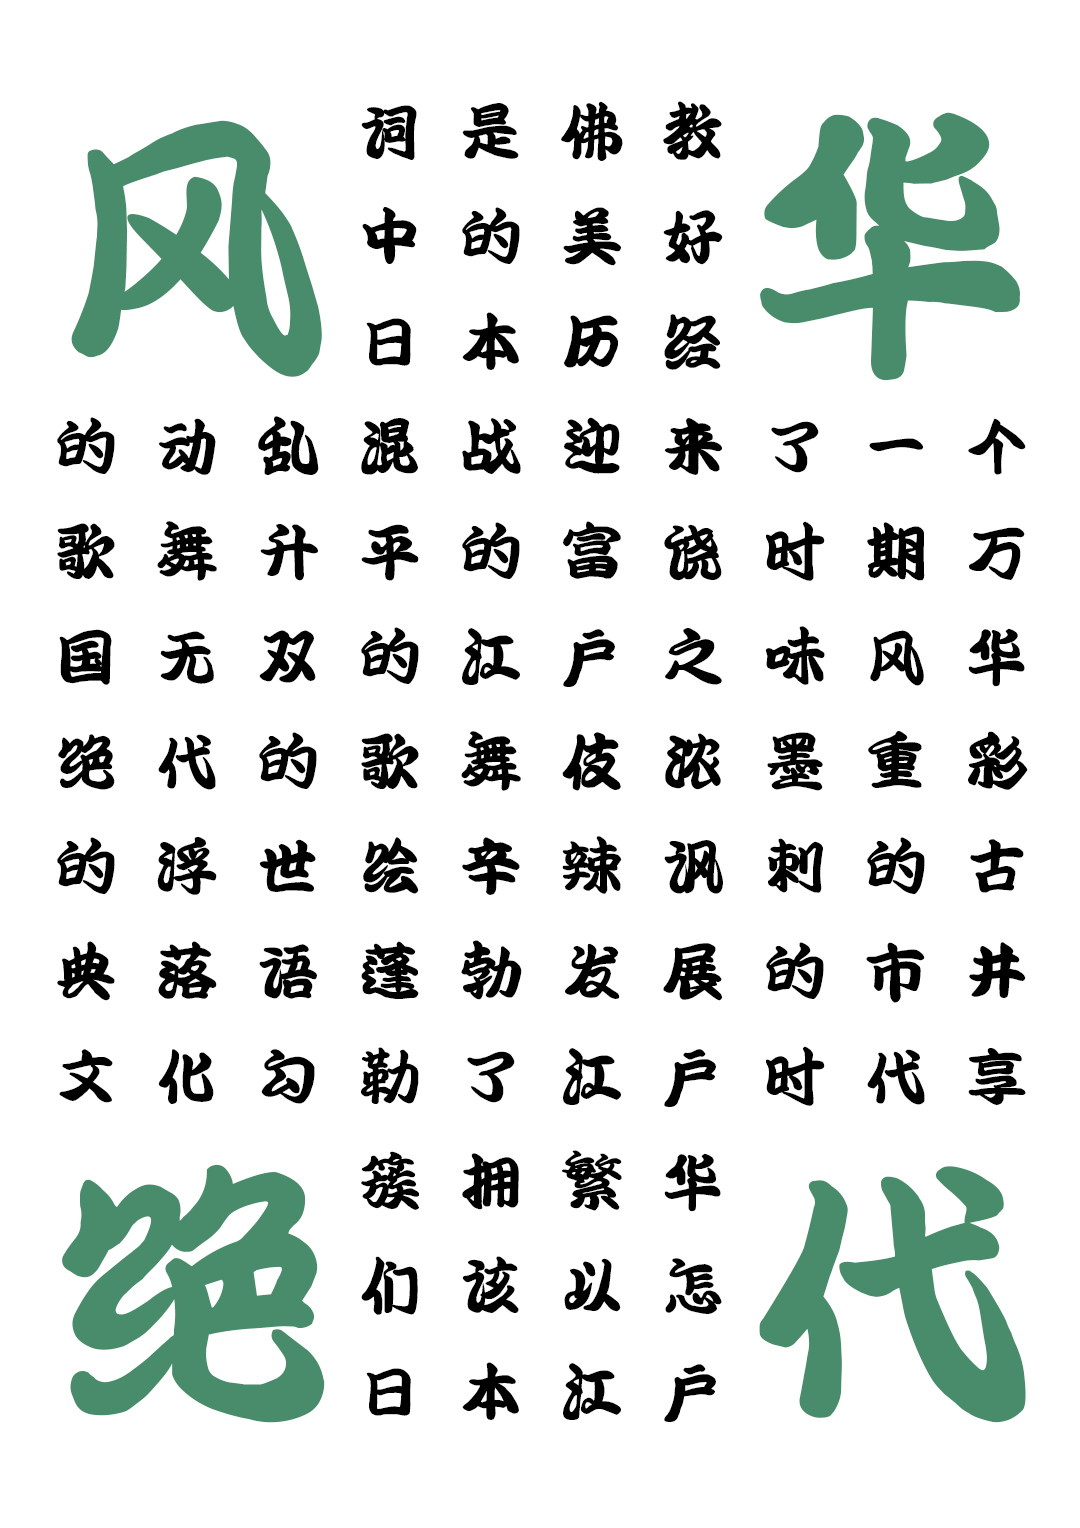 风华
词是佛教
中的美好
日本历经
的动乱混战迎来了一个
歌舞升平的富饶时期万
国无双的江户之味风华
绝代的歌舞伎浓墨重彩
的浮世绘辛辣讽刺的古
典落语蓬勃发展的市井
文化勾勒了江户时代享
绝代
簇拥繁华
们该以怎
日本江户